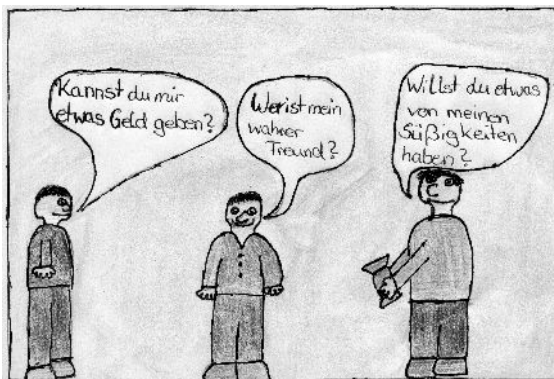 Kannst du mir
etwas Geld geben?
Wer ist mein
wahrer
Freund?
Willst du etwas
von meinen
Süßigkeiten
haben?